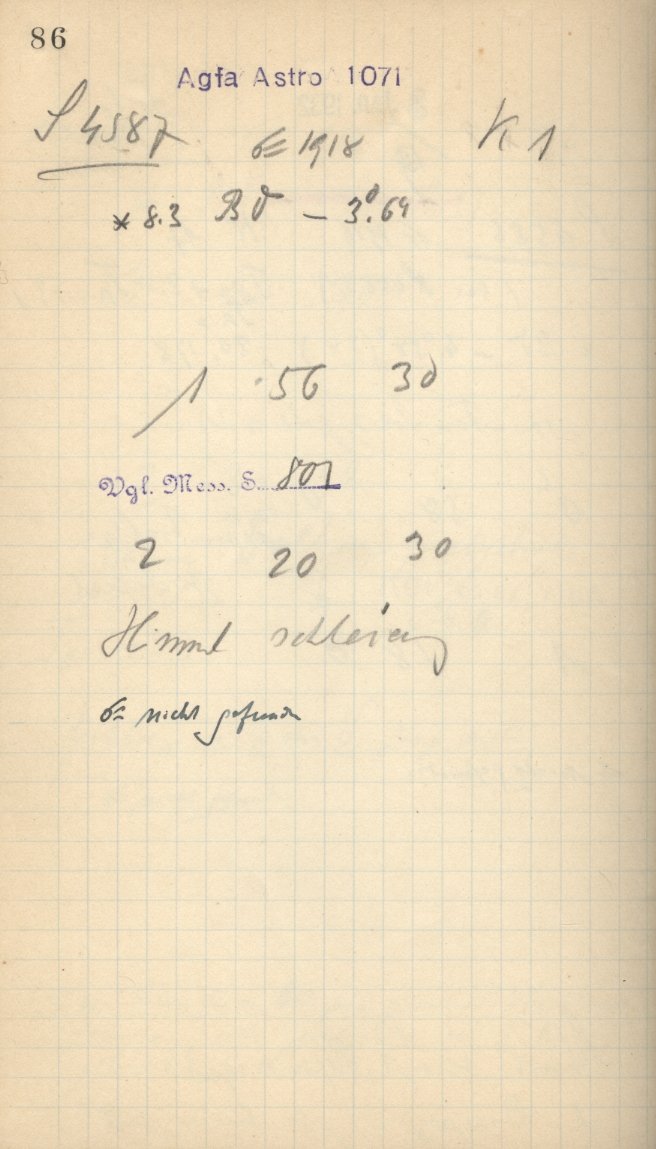 86
Agfa Astro 1071
S 4587 1918 K 1
* 8.3 BD – 3°.64
1 56 30
Vgl. Mess. S. 801
2 20 30
Himmel schleierig
nicht gefunden